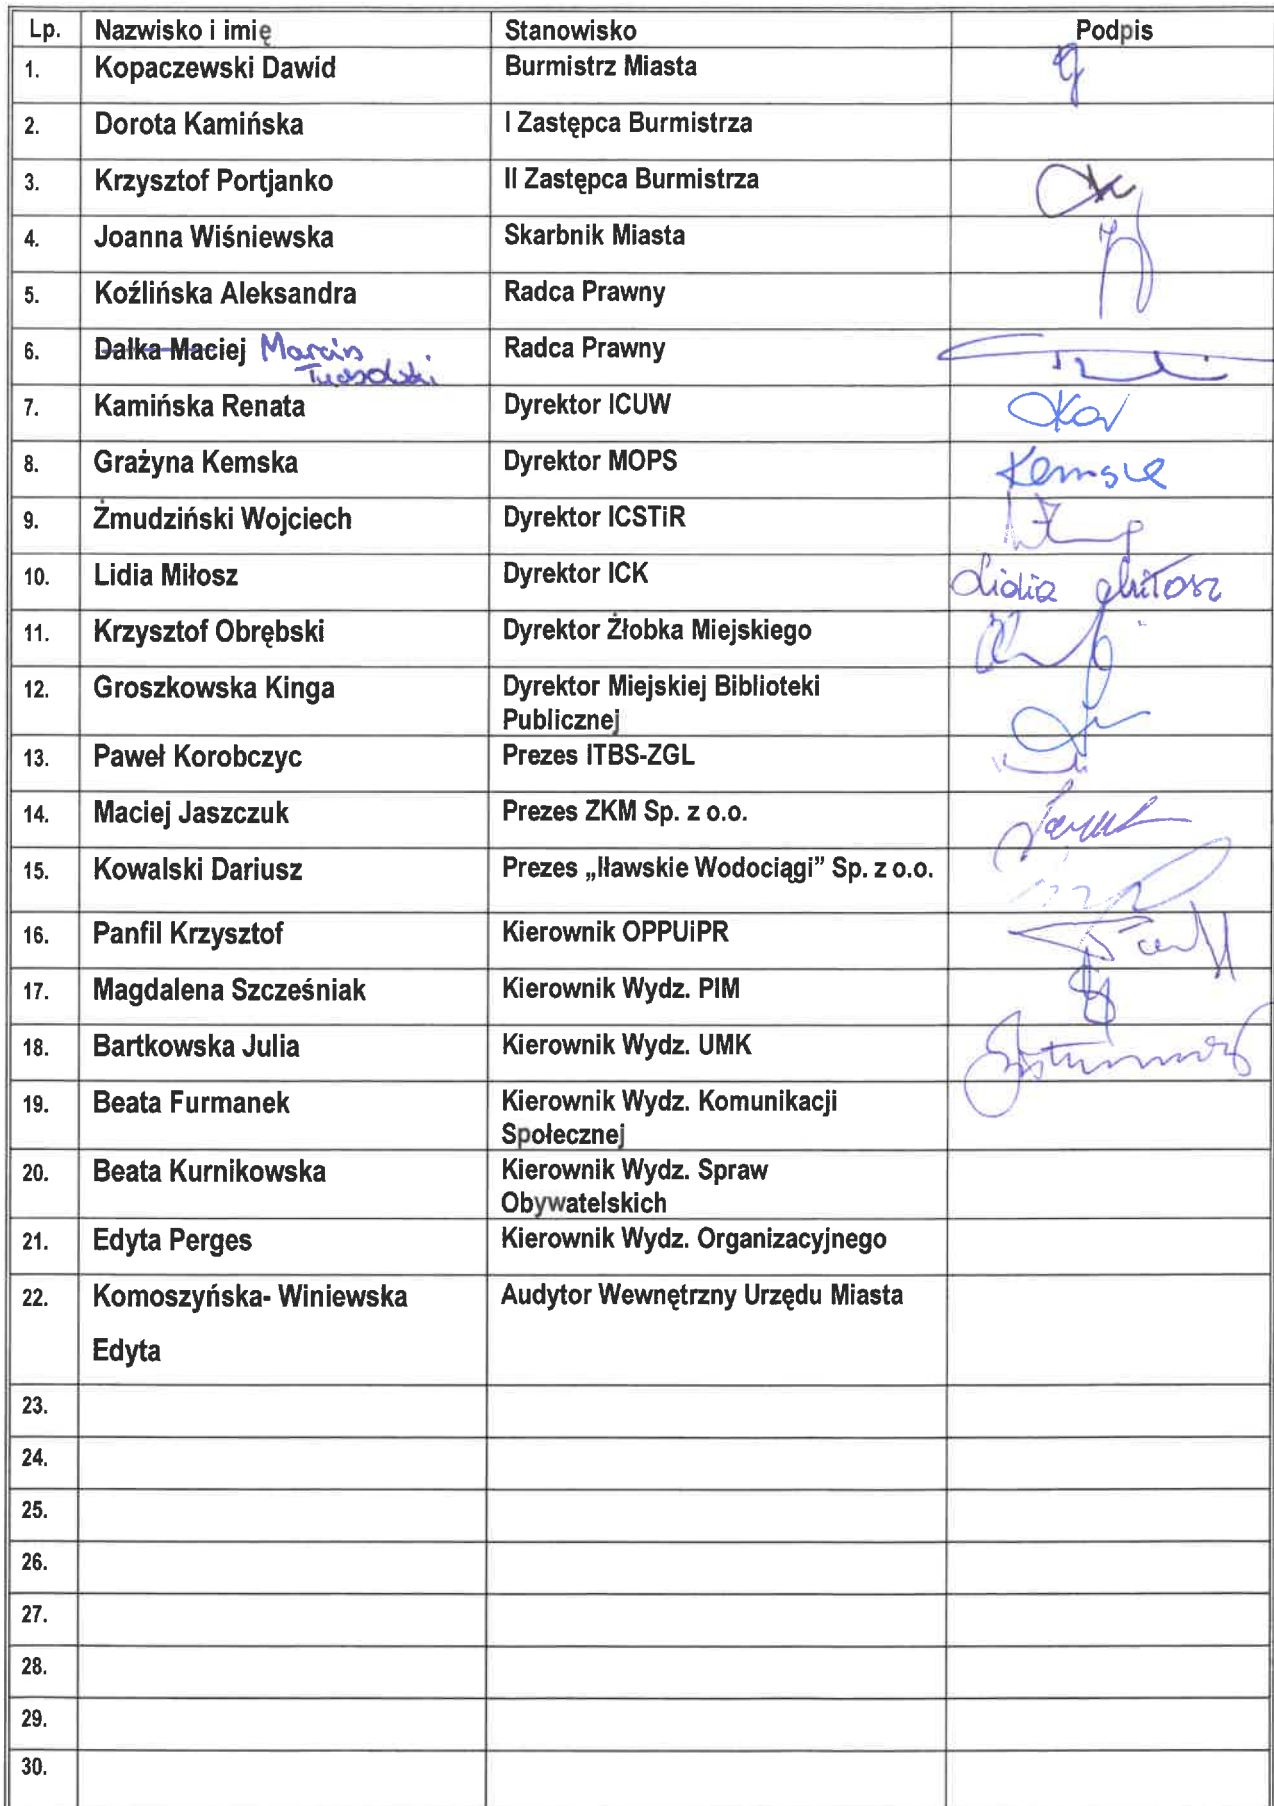 Lp. Nazwisko i imię Stanowisko Podpis
1. Kopaczewski Dawid Burmistrz Miasta
2. Dorota Kamińska I Zastępca Burmistrza
3. Krzysztof Portjanko II Zastępca Burmistrza
4. Joanna Wiśniewska Skarbnik Miasta
5. Koźlińska Aleksandra Radca Prawny
6. Dalka Maciej Marcin Radca Prawny
7. Kamińska Renata Dyrektor ICUW
8. Grażyna Kemska Dyrektor MOPS
9. Żmudziński Wojciech Dyrektor ICSTiR
10. Lidia Miłosz Dyrektor ICK Lidia Miłosz
11. Krzysztof Obrębski Dyrektor Żłobka Miejskiego
12. Groszkowska Kinga Dyrektor Miejskiej Biblioteki
Publicznej
13. Paweł Korobczyc Prezes ITBS-ZGL
14. Maciej Jaszczuk Prezes ZKM Sp. z o.o.
15. Kowalski Dariusz Prezes „Iławskie Wodociągi” Sp. z o.o.
16. Panfil Krzysztof Kierownik OPPUiPR
17. Magdalena Szcześniak Kierownik Wydz. PIM
18. Bartkowska Julia Kierownik Wydz. UMK
19. Beata Furmanek Kierownik Wydz. Komunikacji
Społecznej
20. Beata Kurnikowska Kierownik Wydz. Spraw
Obywatelskich
21. Edyta Perges Kierownik Wydz. Organizacyjnego
22. Komoszyńska- Winiewska Audytor Wewnętrzny Urzędu Miasta
Edyta
23.
24.
25.
26.
27.
28.
29.
30.